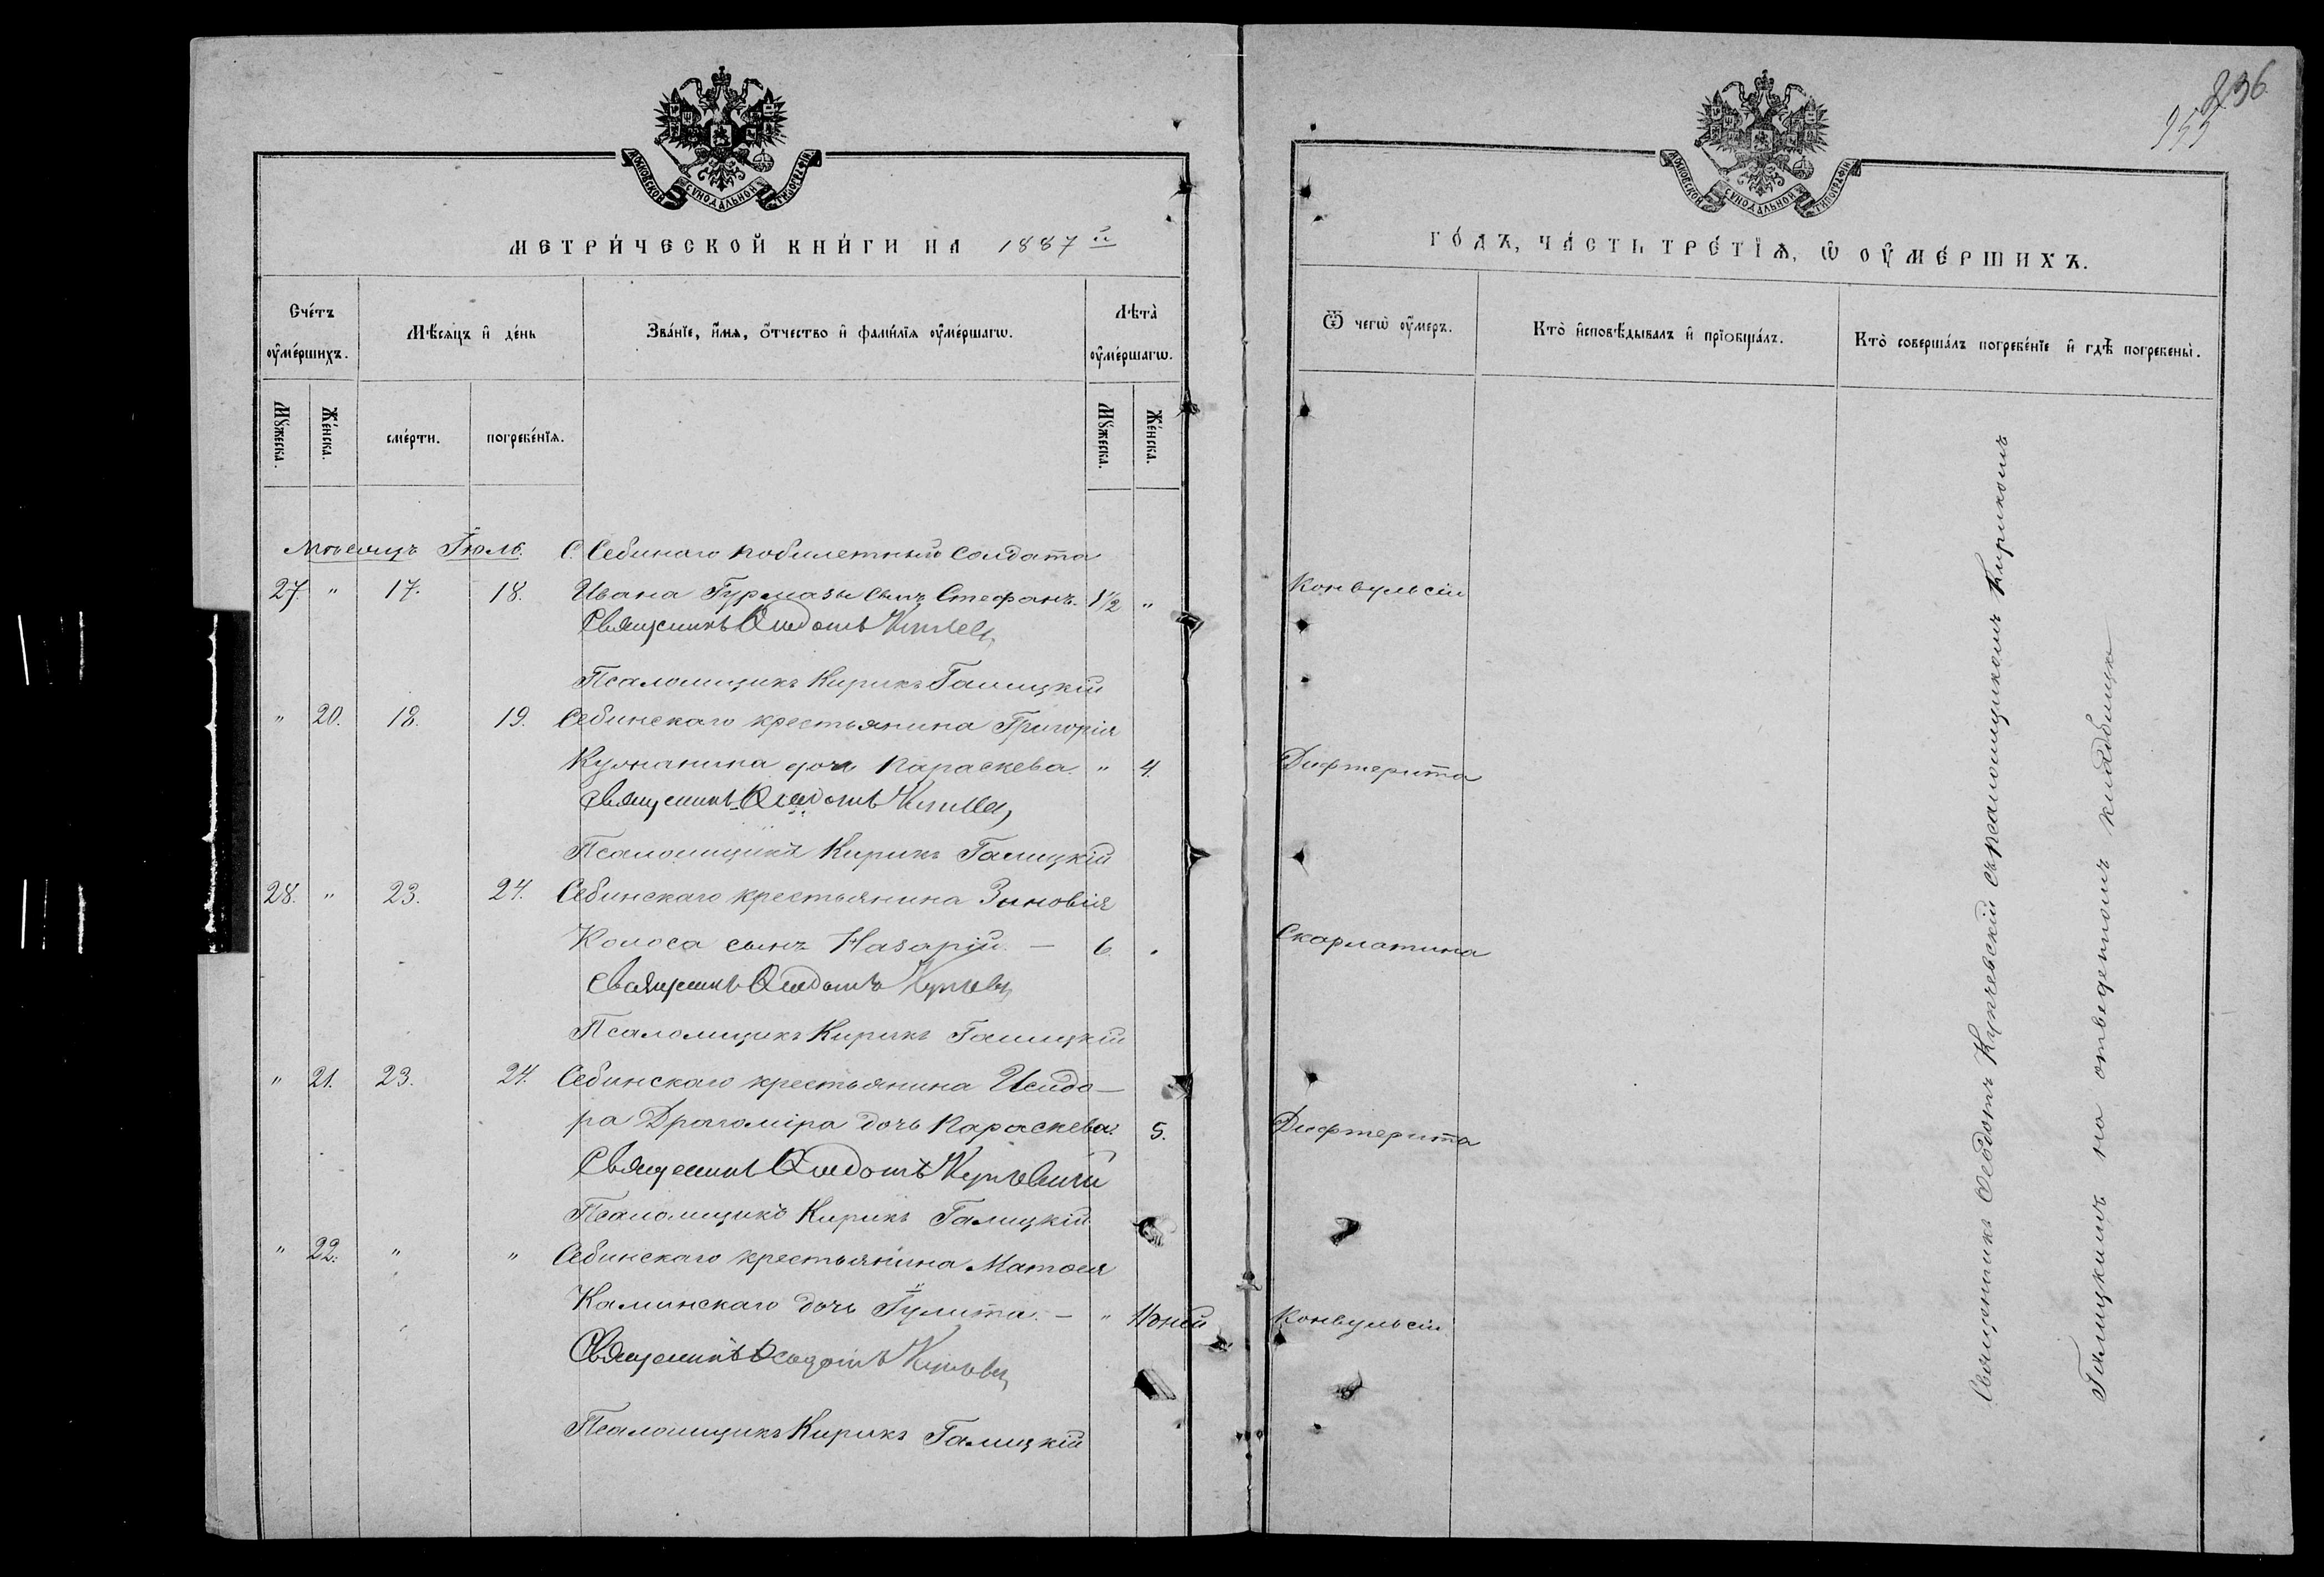 МОСКОВСКОЙ СѴНОДАЛЬНОЙ ТИПОГРАФІИ
МЕТРИ́ЧЕСКОЙ КНИ́ГИ НА 1887 й
Сче́тъ ᲂу҆ме́ршихъ.
Мꙋ́жеска.
Же́нска.
Мѣ́сѧцъ и҆ де́нь
сме́рти.
погребе́нїѧ.
Зва́нїе, и҆́мѧ, ѻ҆́тчество и҆ фами́лїѧ ᲂу҆ме́ршагѡ.
Лѣ́та ᲂу҆ме́ршагѡ.
Мꙋ́жеска.
Же́нска.
Мѣсяцъ Іюль. С. Себинаго побилетный солдата
27. " 17. 18. Ивана Гурмазы сынъ Стефанъ. 1½ "
Священникъ Ѳеодотъ
Псаломщикъ Кирикъ Галицкій
" 20. 18. 19. Себинскаго крестьянина Григорія
дочь Параскева. " 4.
Священникъ Ѳеодотъ
Псаломщикъ Кирикъ Галицкій
28. " 23. 24. Себинскаго крестьянина Зиновія
Колоса сынъ Назарій. — 6. "
Священникъ Ѳеодотъ
Псаломщикъ Кирикъ Галицкій
" 21. 23. 24. Себинскаго крестьянина Исидо-
ра Драгоміра дочь Параскева. 5.
Священникъ Ѳеодотъ
Псаломщикъ Кирикъ Галицкій
" 22. " " Себинскаго крестьянина Матѳея
Каминскаго дочь Іулита. — "
Священникъ Ѳеодотъ
Псаломщикъ Кирикъ Галицкій
236
955
МОСКОВСКОЙ СѴНОДАЛЬНОЙ ТИПОГРАФІИ
ГО́ДЪ, ЧА́СТЬ ТРЕ́ТЇѦ, Ѡ҆ ОУ҆МЕ́РШИХЪ.
Ѿ чегѡ̀ ᲂу҆́меръ.
Кто̀ и҆сповѣ́дывалъ и҆ прїѻбща́лъ.
Кто̀ соверша́лъ погребе́нїе и҆ гдѣ̀ погребены̀.
Конвульсіи
Дифтерита
Скарлатина
Дифтерита
Конвульсіи
Священникъ Ѳеодотъ Купчевскій съ псаломщикомъ Кирикомъ
Галицкимъ на отведенномъ кладбищѣ